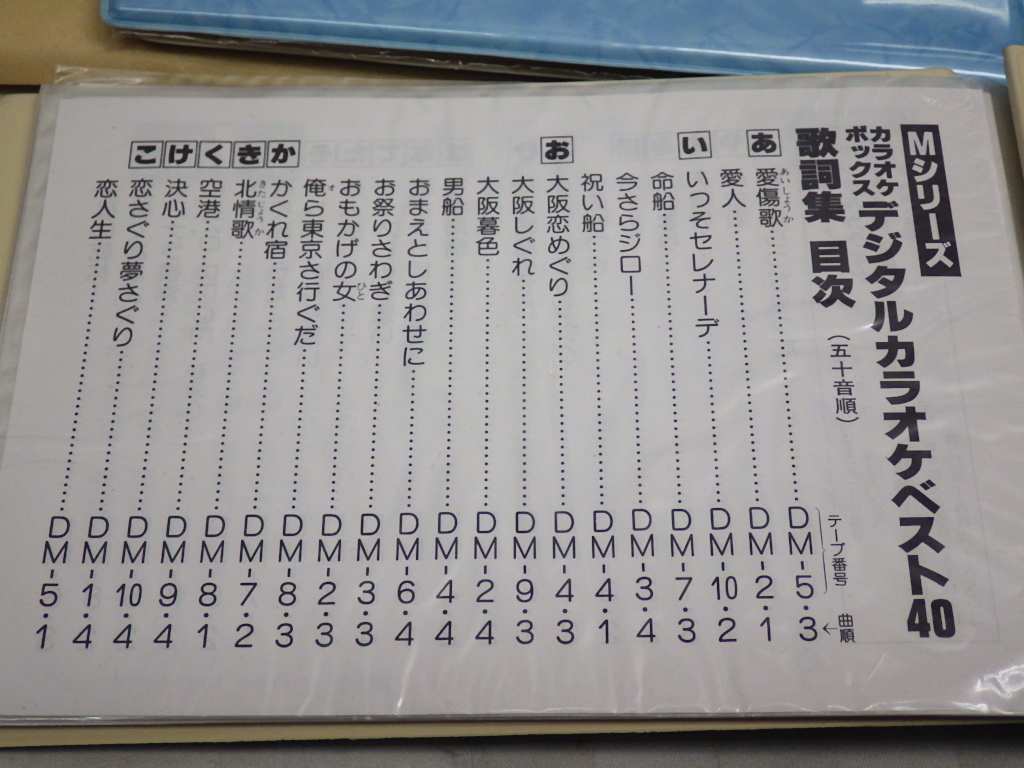 Mシリーズ
カラオケボックス デジタルカラオケベスト40
歌詞集 目次 (五十音順)
テープ番号 曲順
あ 愛傷歌(あいしょうか)……DM-5・3
愛人……DM-2・1
い いっそセレナーデ……DM-10・2
命船……DM-7・3
今さらジロー……DM-3・4
祝い船……DM-4・1
お 大阪恋めぐり……DM-4・3
大阪しぐれ……DM-9・3
大阪暮色……DM-2・4
男船……DM-4・4
おまえとしあわせに……DM-6・4
お祭りさわぎ……DM-3・3
おもかげの女(ひと)……DM-2・3
俺(オ)ら東京さ行ぐだ……DM-8・3
か かくれ宿……DM-7・2
き 北情歌(きたじょうか)……DM-8・1
く 空港……DM-9・4
け 決心……DM-10・4
こ 恋さぐり夢さぐり……DM-1・4
恋人生……DM-5・1